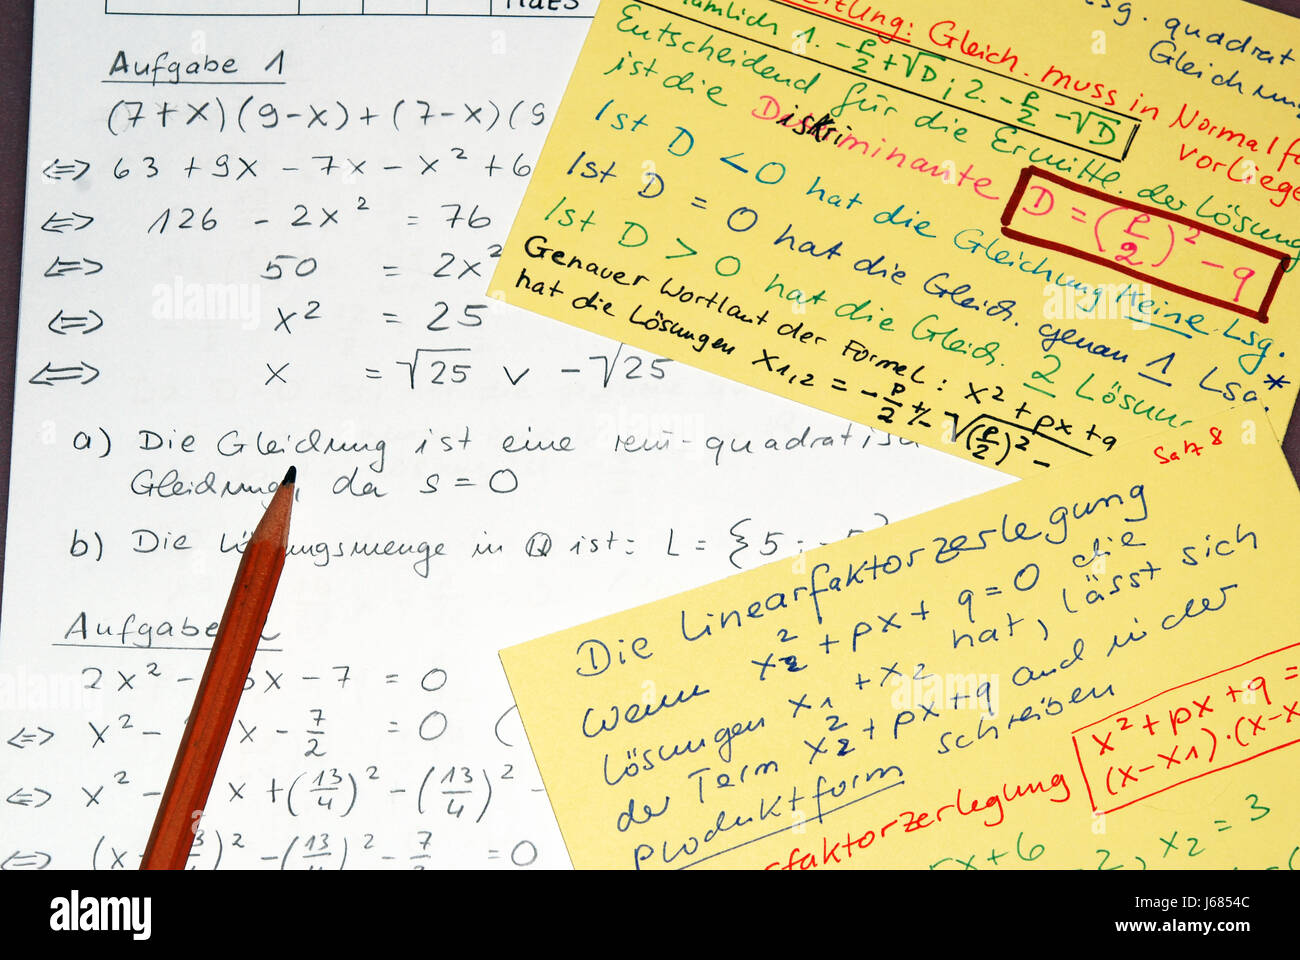 Aufgabe 1
(7+x)(9-x)+(7-x)(9
⇔ 63 + 9x - 7x - x² + 6
⇔ 126 - 2x² = 76
⇔ 50 = 2x²
⇔ x² = 25
⇔ x = √25 ∨ -√25
a) Die Gleichung ist eine rein-quadratisc
Gleichung, da s = 0
b) Die Lösungsmenge in ℚ ist: L = {5; -5}
Aufgabe 2
2x² - x - 7 = 0
⇔ x² - x - 7/2 = 0 (
⇔ x² - x + (13/4)² - (13/4)² -
⇔ (x - )² - (13/4)² - 7/2 = 0
Gleich. muss in Normalfo
vorliege
sg. quadrat
Gleichung
nämlich 1. -p/2 + √D; 2. -p/2 - √D
Entscheidend für die Ermittl. der Lösung
ist die Diskriminante D = (p/2)² - q
Ist D < 0 hat die Gleichung keine Lsg.
Ist D = 0 hat die Gleich. genau 1 Lsg.*
Ist D > 0 hat die Gleich. 2 Lösun
Genauer Wortlaut der Formel: x² + px + q
hat die Lösungen x1,2 = -p/2 +/- √(p/2)² -
Satz 8
Die Linearfaktorzerlegung
wenn x² + px + q = 0 die
Lösungen x1 + x2 hat, lässt sich
der Term x² + px + q und in der
Produktform schreiben
rfaktorzerlegung x² + px + q =
(x - x1)·(x - x
5x + 6
2, x2 = 3
alamy
Image ID: J6854C
www.alamy.com